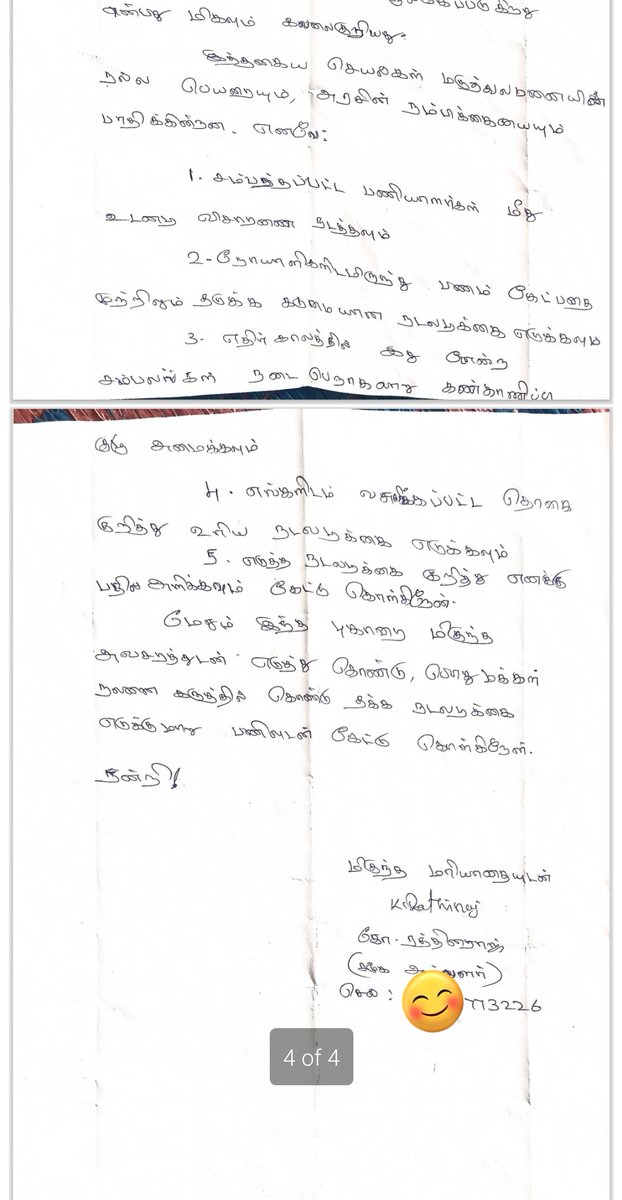 என்பது மிகவும் கவலைகுறியது.
இத்தகைய செயல்கள் மருத்துவமனையின்
நல்ல பெயரையும், அரசின் நம்பிக்கையையும்
பாதிக்கின்றன. எனவே:
1. சம்பந்தப்பட்ட பணியாளர்கள் மீது
உடனடி விசாரணை நடத்தவும்
2- நோயாளிகளிடமிருந்து பணம் கேட்பதை
முற்றிலும் தடுக்க கடுமையான நடவடிக்கை எடுக்கவும்
3. எதிர் காலத்தில் இது போன்ற
சம்பவங்கள் நடை பெறாதவாறு கண்காணிப்பு
குழு அமைக்கவும்
4. எங்களிடம் வசூலிக்கப்பட்ட தொகை
குறித்து உரிய நடவடிக்கை எடுக்கவும்
5. எடுத்த நடவடிக்கை குறித்து எனக்கு
பதில் அளிக்கவும் கேட்டு கொள்கிறேன்.
மேலும் இந்த புகாரை மிகுந்த
அவசரத்துடன் எடுத்து கொண்டு, பொது மக்கள்
நலனை கருத்தில் கொண்டு தக்க நடவடிக்கை
எடுக்குமாறு பணிவுடன் கேட்டு கொள்கிறேன்.
நன்றி!
மிகுந்த மரியாதையுடன்
K. Rathinaj
கோ. ரத்தினராஜ்
செல : 773226
4 of 4